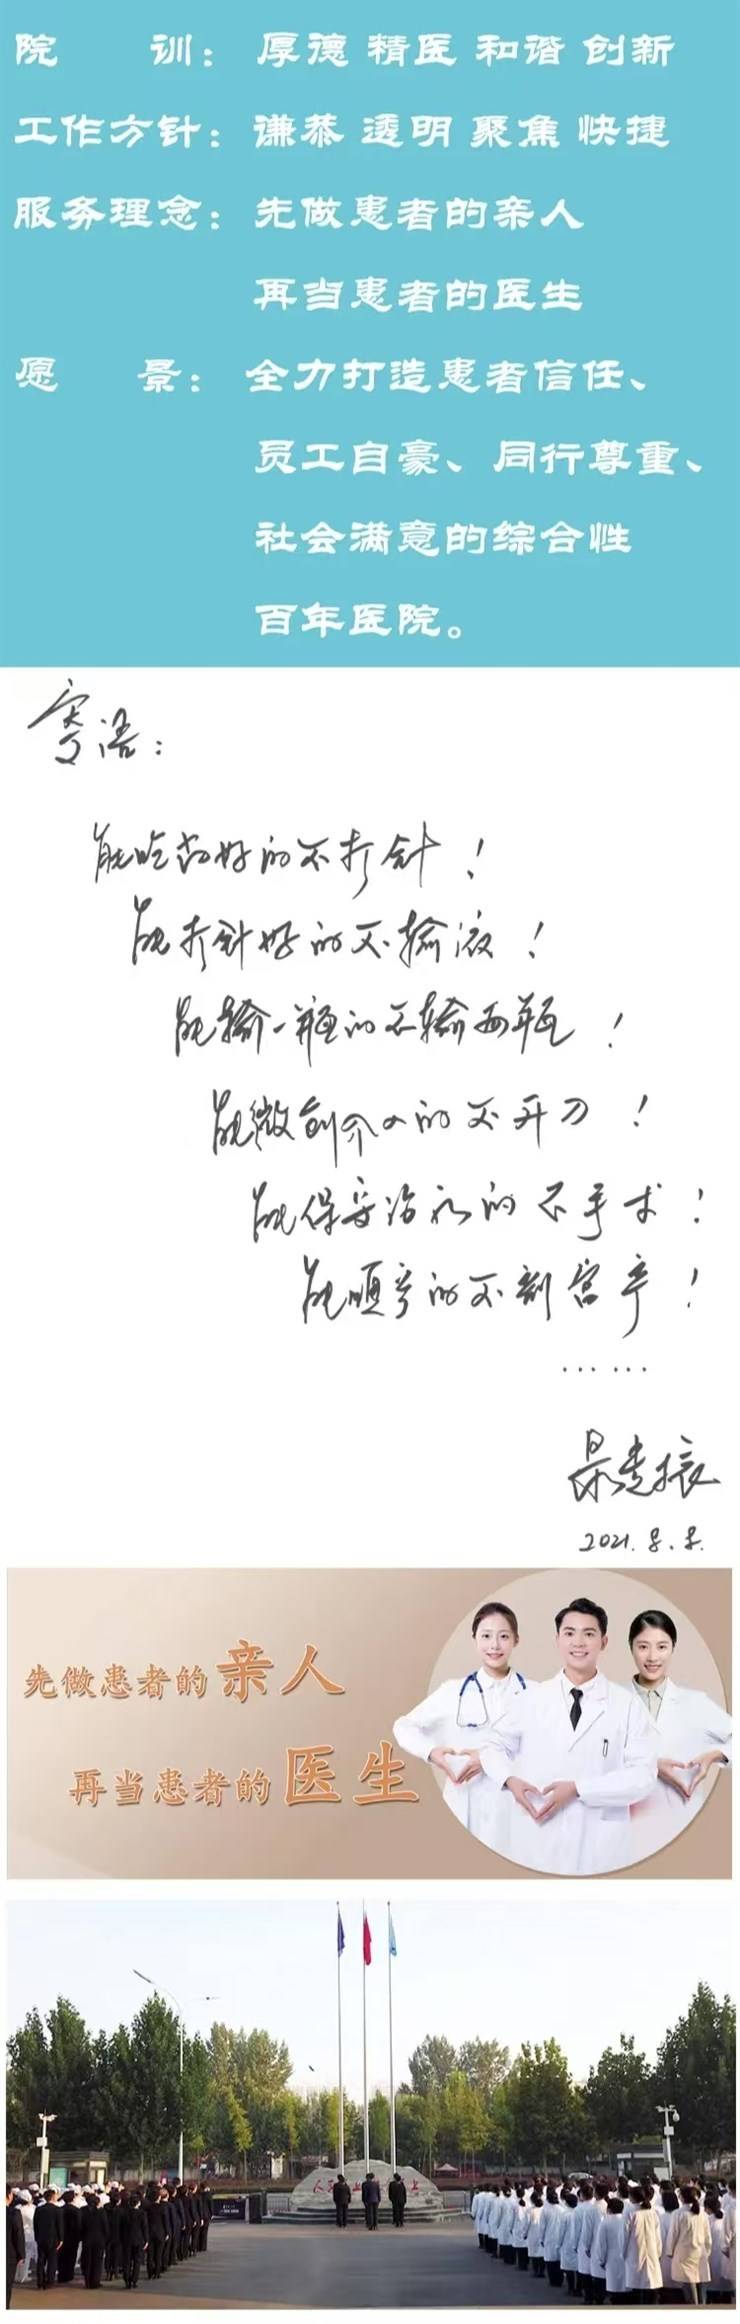 院 训： 厚德 精医 和谐 创新
工作方针：谦恭 透明 聚焦 快捷
服务理念：先做患者的亲人
再当患者的医生
愿 景： 全力打造患者信任、
员工自豪、同行尊重、
社会满意的综合性
百年医院。
寄语：
能吃药好的不打针！
能打针好的不输液！
能输一瓶的不输两瓶！
能微创介入的不开刀！
能保守治疗的不手术！
能顺产的不剖宫产！
……
2021.8.8.
先做患者的亲人
再当患者的医生